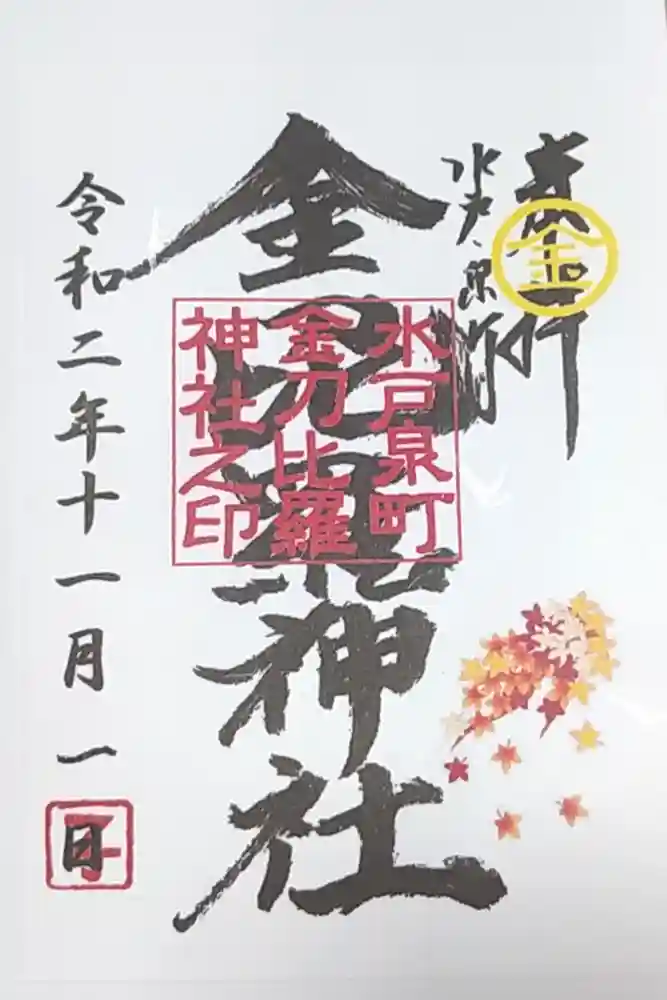 奉拝
水戸泉町
金
金刀比羅神社
水戸泉町
金刀比羅
神社之印
令和二年十一月一日
子